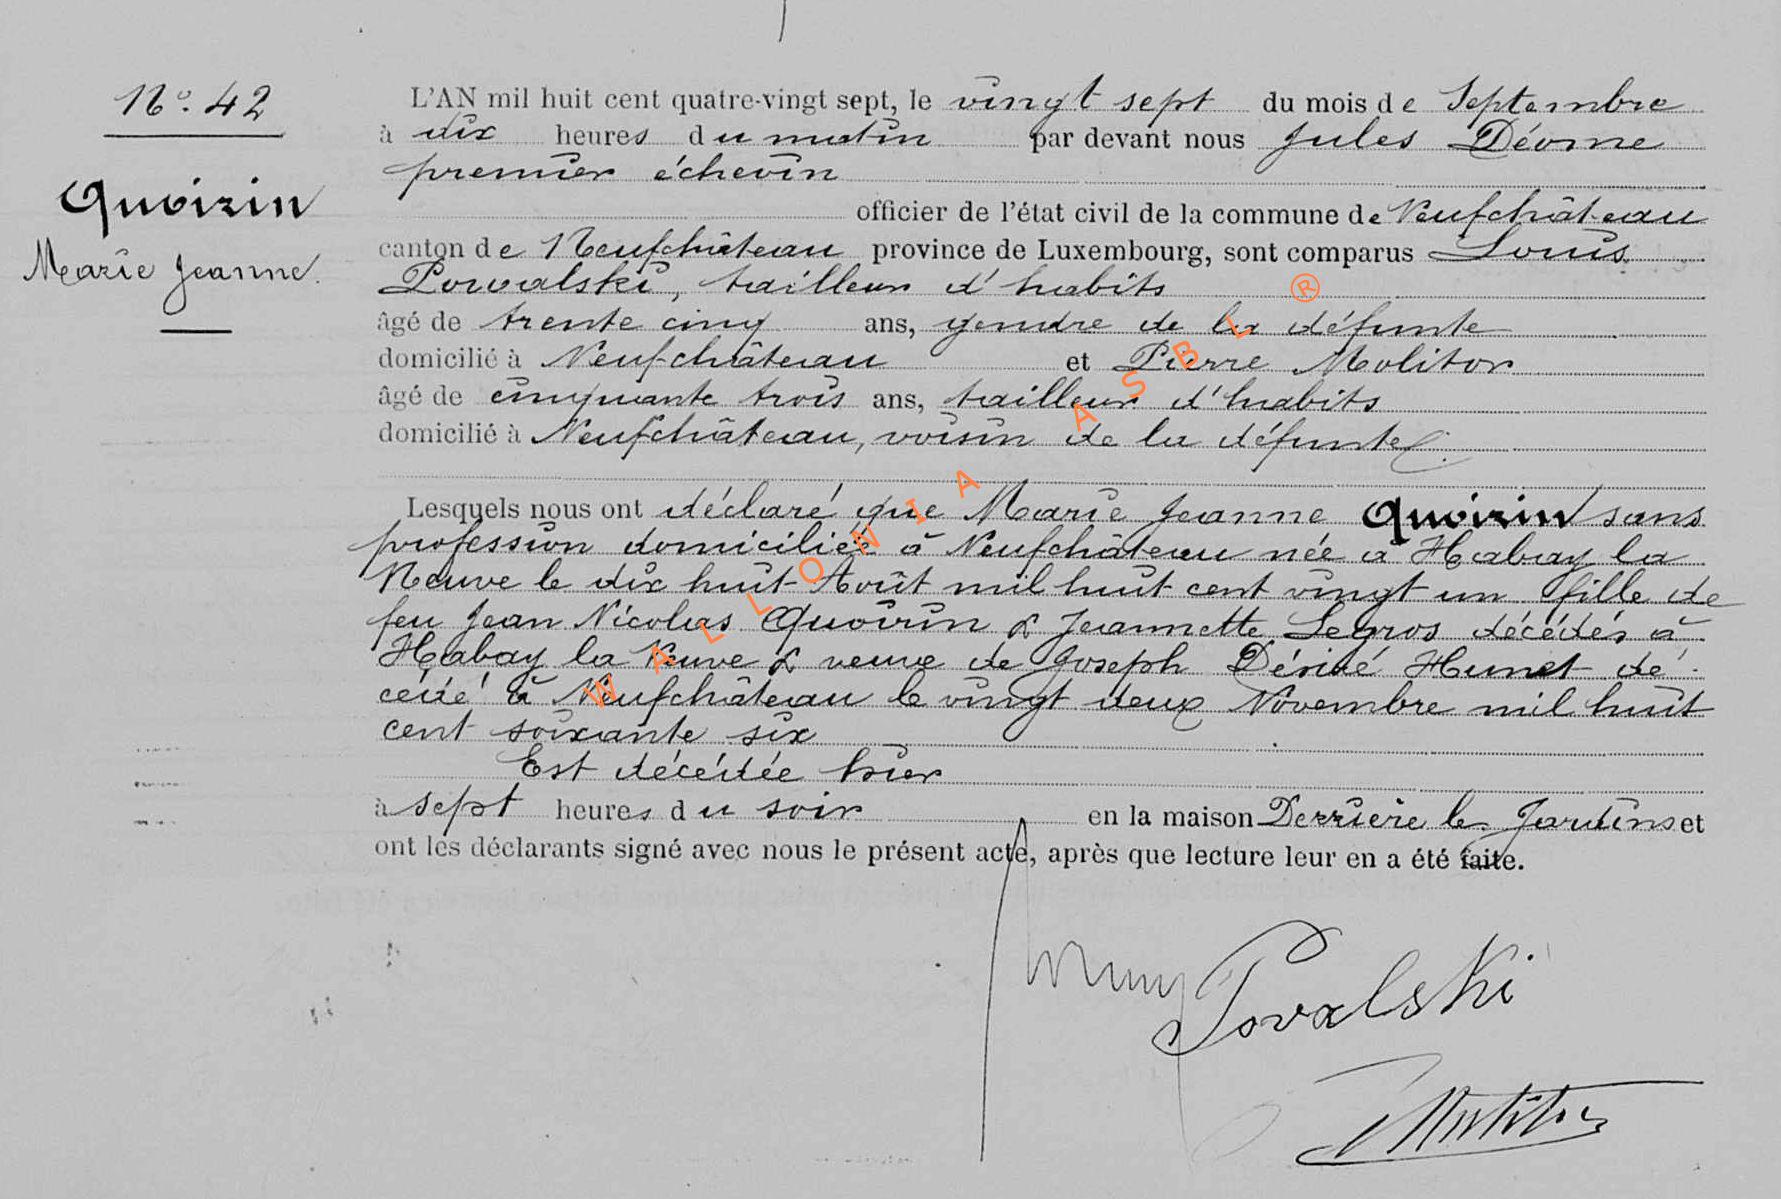 N° 42
Quoirin
Marie Jeanne.
L'AN mil huit cent quatre-vingt sept, le vingt sept du mois de Septembre
à dix heures du matin par devant nous Jules Déome
premier échevin
officier de l'état civil de la commune de Neufchâteau
canton de Neufchâteau province de Luxembourg, sont comparus Louis
Powalski, tailleur d'habits
âgé de trente cinq ans, gendre de la défunte
domicilié à Neufchâteau et Pierre Molitor
âgé de cinquante trois ans, tailleur d'habits
domicilié à Neufchâteau, voisin de la défunte
Lesquels nous ont déclaré que Marie Jeanne Quoirin sans
profession domiciliée à Neufchâteau née à Habay la
Neuve le dix huit Août mil huit cent vingt un fille de
feu Jean Nicolas Quoirin & Jeannette Legros décédés à
Habay la Neuve & veuve de Joseph Désiré Hunet dé-
cédé à Neufchâteau le vingt deux Novembre mil huit
cent soixante six
Est décédée hier
à sept heures du soir en la maison Derrière les Jardins et
ont les déclarants signé avec nous le présent acte, après que lecture leur en a été faite.
Povalski
Molitor
WALLONIA ASBL ®